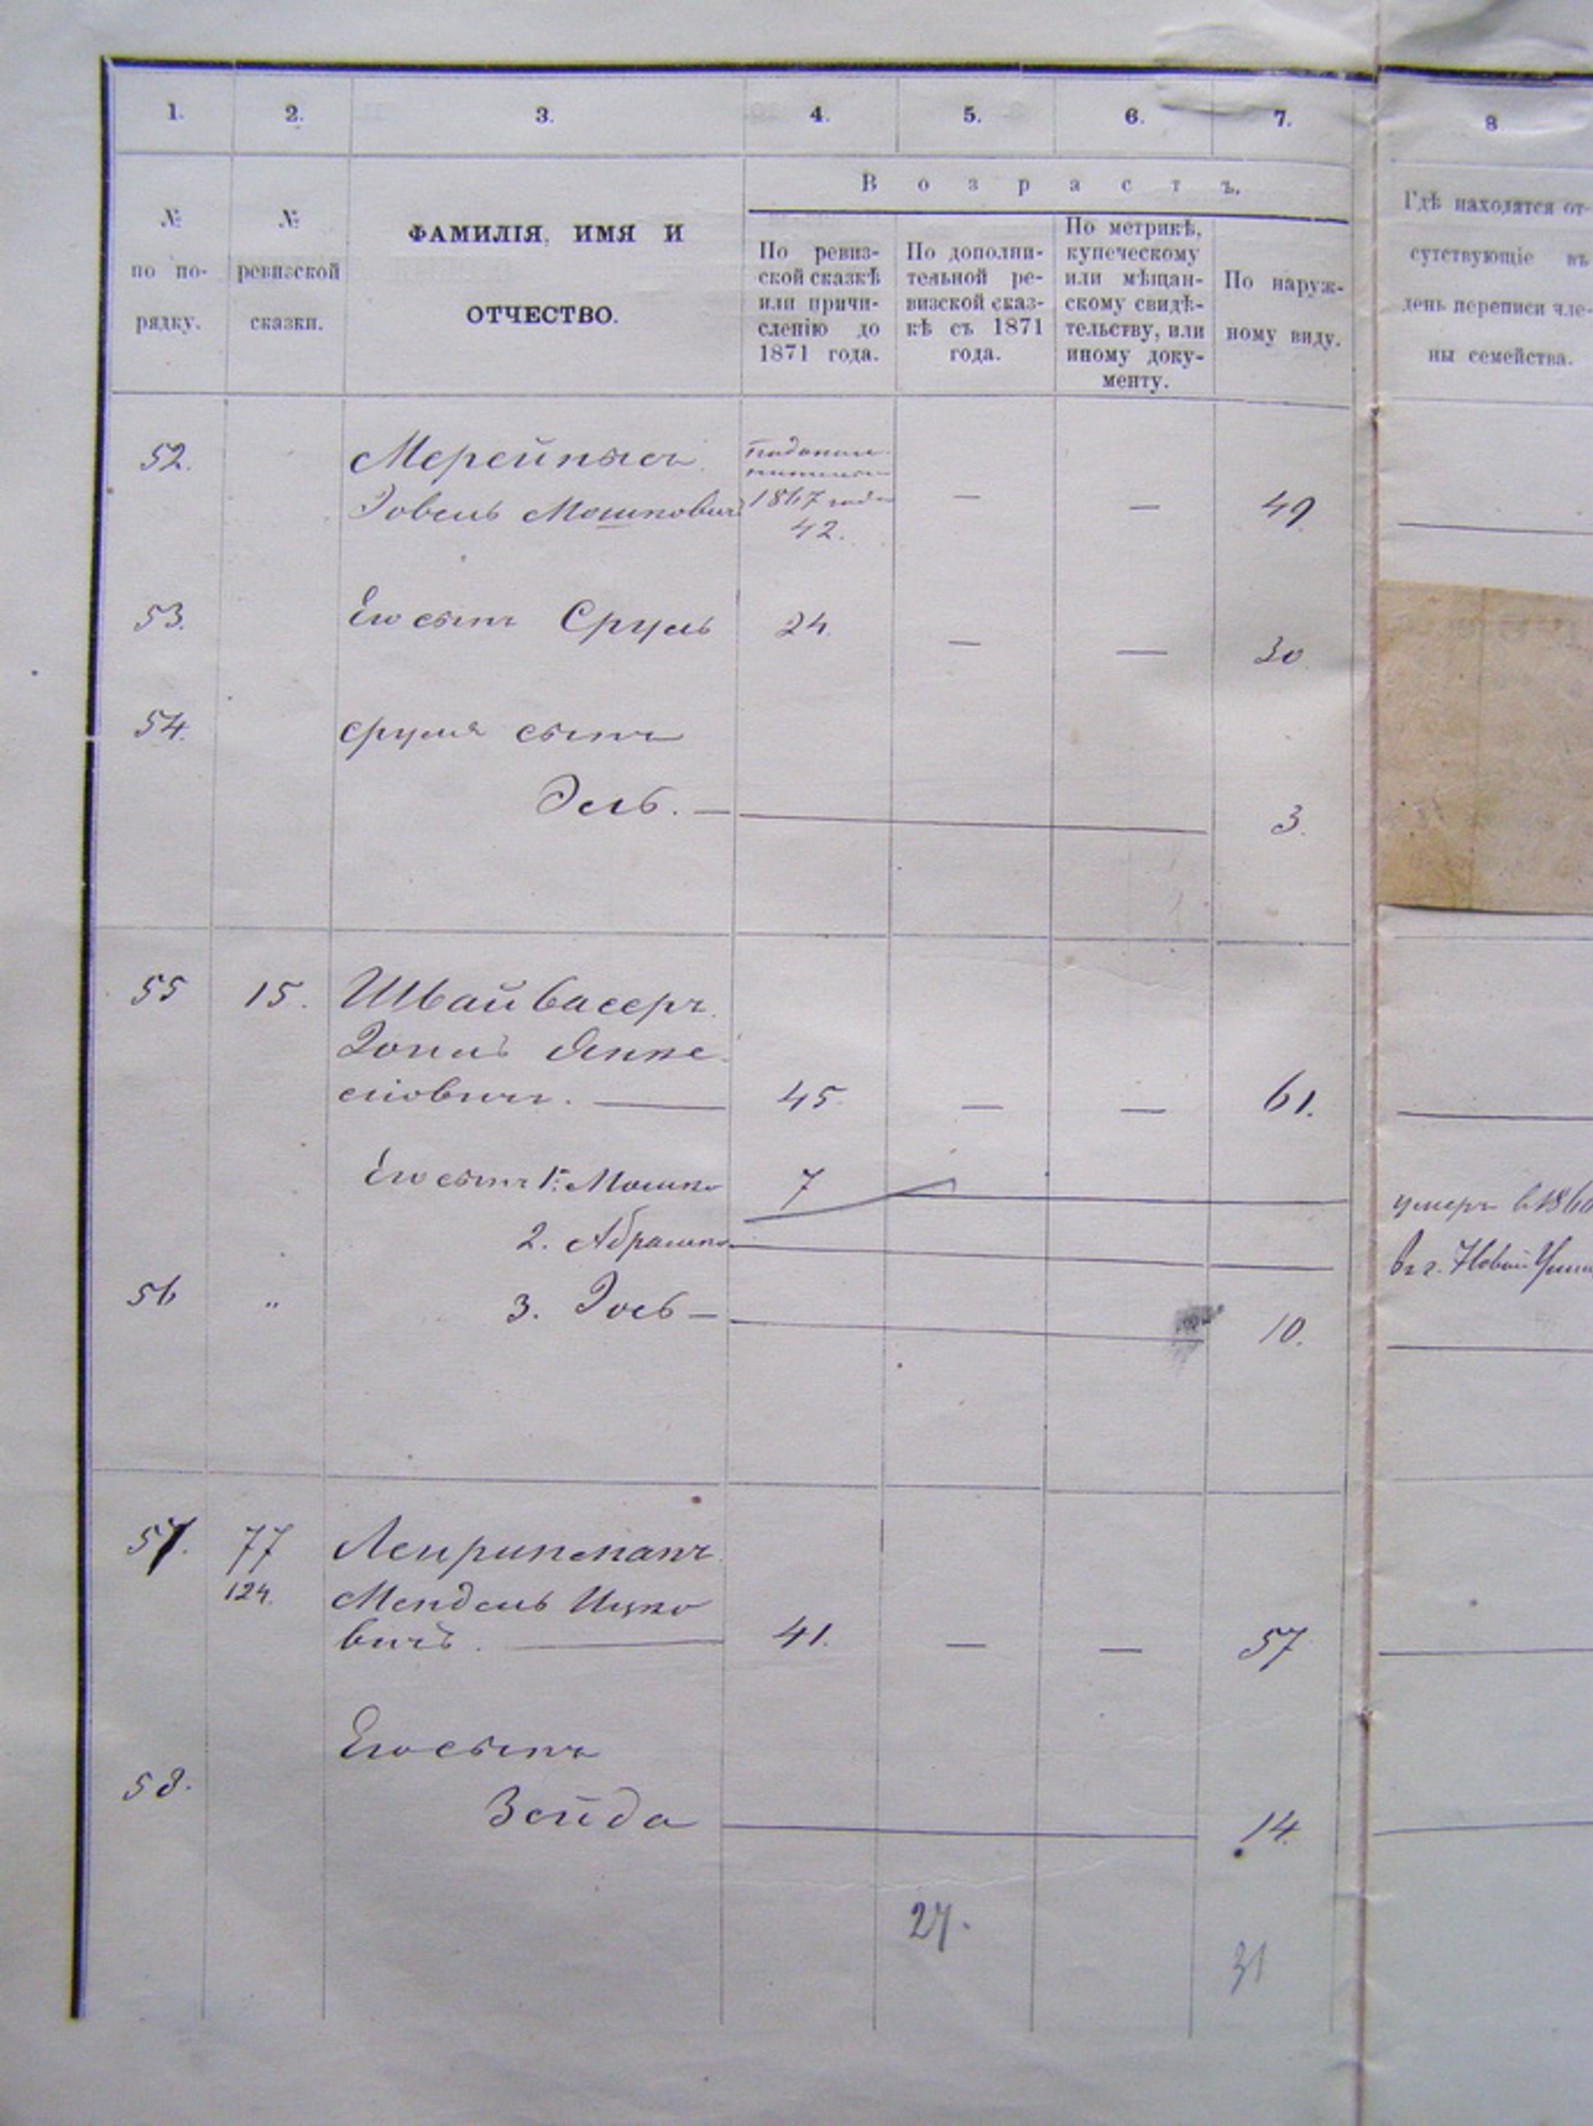 1. 2. 3. 4. 5. 6. 7. 8
Возрастъ.
№ по порядку.
№ ревизской сказки.
ФАМИЛІЯ, ИМЯ И
ОТЧЕСТВО.
По ревиз-
ской сказкѣ
или причи-
сленію до
1871 года.
По дополни-
тельной ре-
визской сказ-
кѣ съ 1871
года.
По метрикѣ,
купеческому
или мѣщан-
скому свидѣ-
тельству, или
иному доку-
менту.
По наруж-
ному виду.
Гдѣ находятся от-
сутствующіе въ
день переписи чле-
ны семейства.
52.
1867 года
Мошковичъ
42. — — 49
53. Его сынъ Сруль 24. — — 30
54. Сруля сынъ
Эль. — 3.
55 15. Швайвасеръ
45 — — 61.
Его сынъ 1. Мошко 7 умеръ въ 186
2. Абрамко въ г. Новой Уши
56 " 3. Іось — 10.
57. 77
124. Мендель Ицко
вичъ. 41. — — 57
Его сынъ
58. Зейда 14.
27.
31